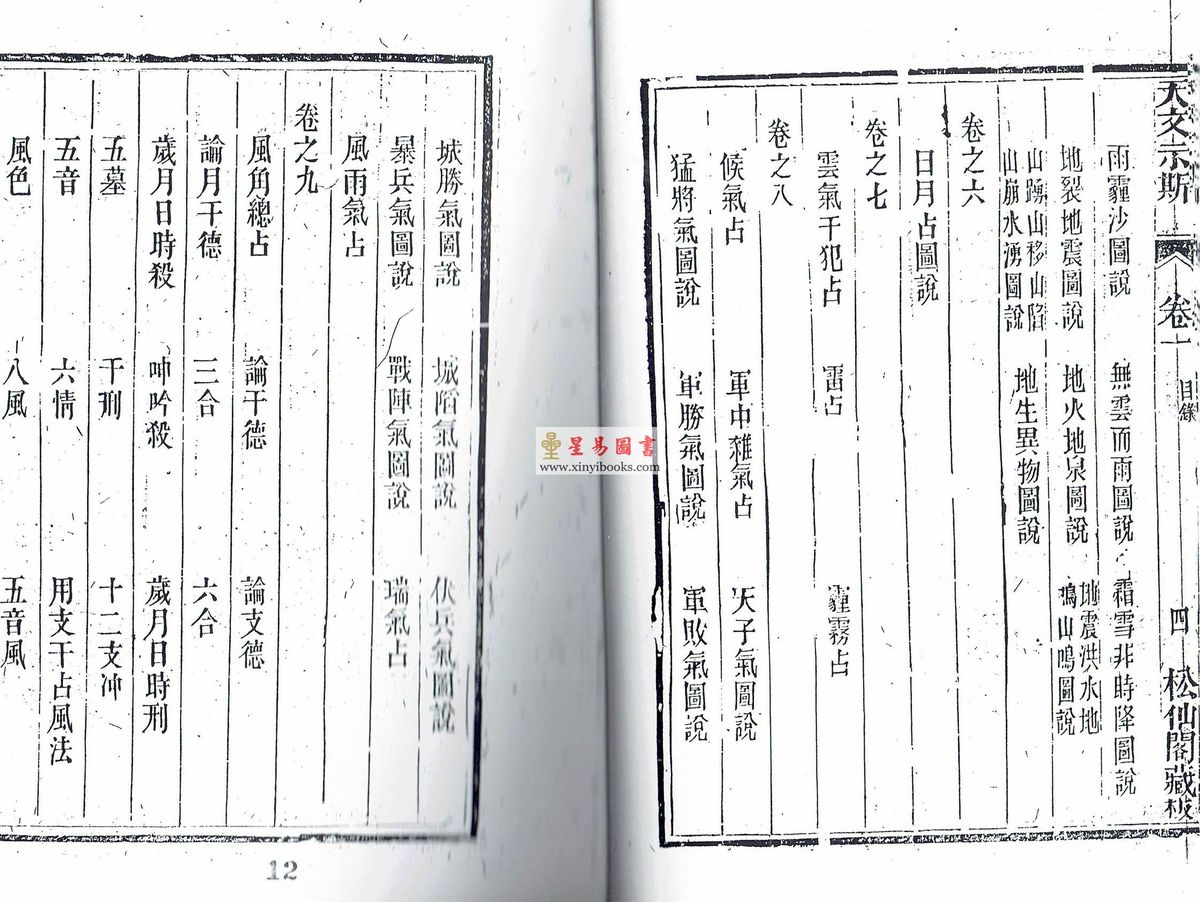 天文示斯 卷一 目錄 四 松仙閣藏板
雨霾沙圖說 無雲而雨圖說 霜雪非時降圖說
地裂地震圖說 地火地泉圖說 地震洪水地鳴山鳴圖說
山踴山移山陷山崩水湧圖說 地生異物圖說
卷之六
日月占圖說
卷之七
雲氣干犯占 雷占 霾霧占
卷之八
候氣占 軍中雜氣占 天子氣圖說
猛將氣圖說 軍勝氣圖說 軍敗氣圖說
城勝氣圖說 城陷氣圖說 伏兵氣圖說
暴兵氣圖說 戰陣氣圖說 瑞氣占
風雨氣占
卷之九
風角總占 論干德 論支德
論月干德 三合 六合
歲月日時殺 呻吟殺 歲月日時刑
五墓 干刑 十二支冲
五音 六情 用支干占風法
風色 八風 五音風
12
星易圖書
www.xinyibooks.com